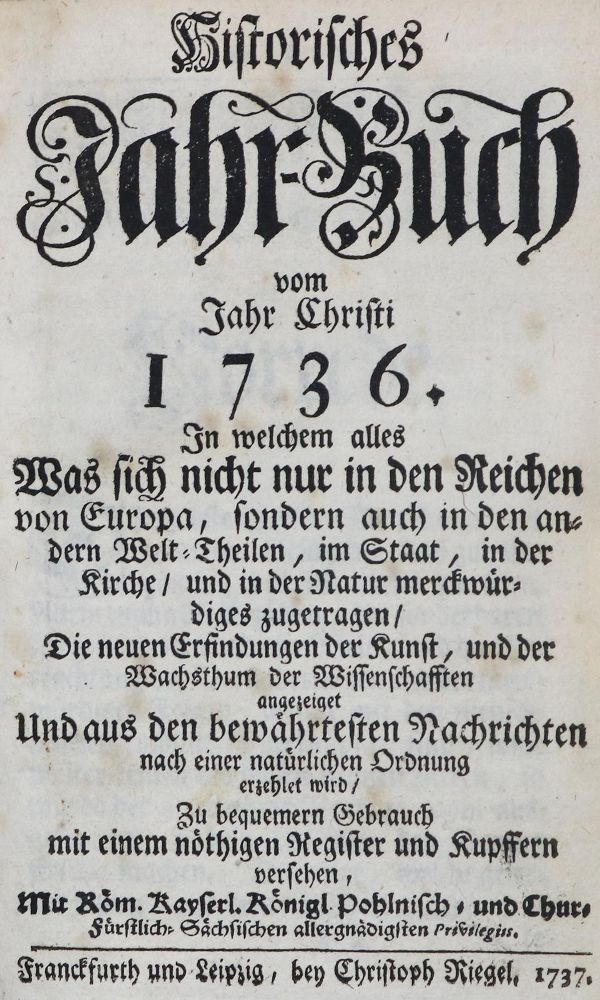 Historisches
Jahr-Buch
vom
Jahr Christi
1736.
In welchem alles
Was sich nicht nur in den Reichen
von Europa, sondern auch in den an-
dern Welt-Theilen, im Staat, in der
Kirche/ und in der Natur merckwür-
diges zugetragen/
Die neuen Erfindungen der Kunst, und der
Wachsthum der Wissenschafften
angezeiget
Und aus den bewährtesten Nachrichten
nach einer natürlichen Ordnung
erzehlet wird/
Zu bequemern Gebrauch
mit einem nöthigen Register und Kupffern
versehen,
Mit Röm. Kayserl. Königl. Pohlnisch- und Chur-
Fürstlich-Sächsischen allergnädigsten Privilegiis.
Franckfurth und Leipzig, bey Christoph Riegel. 1737.